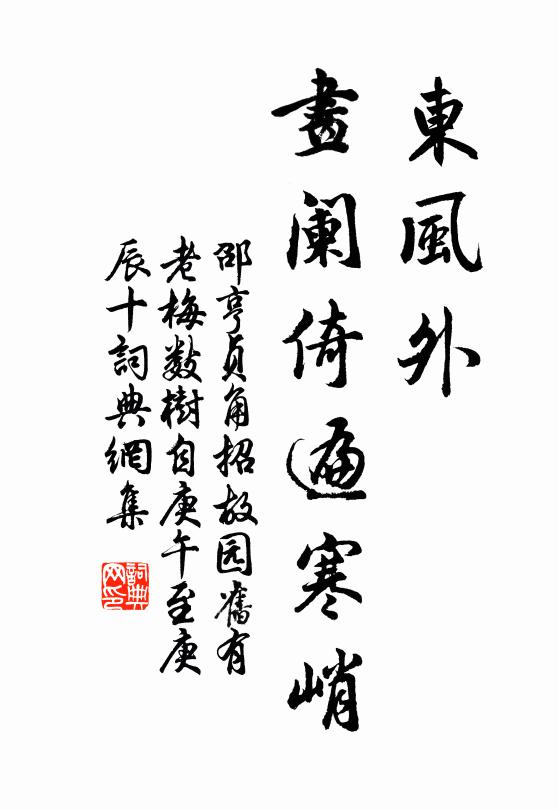 東風外
畫闌倚遍寒峭
邵亨貞角招故园舊有
老梅数樹自庚午至庚
辰十詞典網集
詞典网印